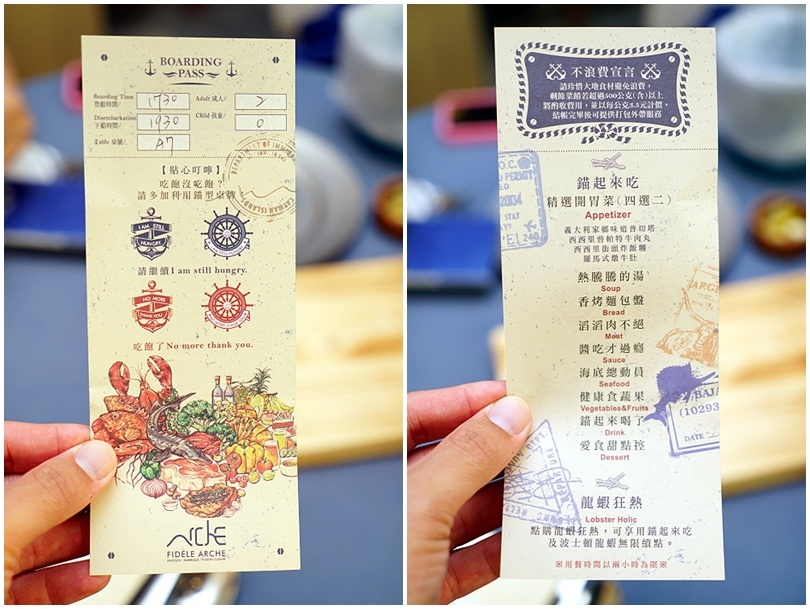 BOARDING
PASS
Boarding Time
登船時間/
1730
Adult成人/
2
Disembarkation
下船時間/
1930
Child 孩童/
0
Table 桌號/
A7
DEPARTMENT OF IMMIGR
CAYMAN ISLANDS
【貼心叮嚀】
吃飽沒吃飽？
請多加利用錨型桌牌
I AM STILL
HUNGRY
請繼續I am still hungry.
NO MORE
THANK YOU
吃飽了No more thank you.
Arche
FIDÈLE ARCHE
不浪費宣言
請珍惜大地食材避免浪費，
剩餘菜餚若超過500公克(含)以上
將酌收費用，並以每公克3.5元計價，
結帳完畢後可提供打包外帶服務
錨起來吃
精選開胃菜(四選二)
Appetizer
義大利家鄉味道普切塔
西西里普帕特牛肉丸
西西里街頭炸飯糰
羅馬式燉牛肚
熱騰騰的湯
Soup
香烤麵包盤
Bread
滔滔肉不絕
Meat
醬吃才過癮
Sauce
海底總動員
Seafood
健康食蔬果
Vegetables&Fruits
錨起來喝了
Drink
愛食甜點控
Dessert
BAJA
(10293
DATE
龍蝦狂熱
Lobster Holic
點購龍蝦狂熱，可享用錨起來吃
及波士頓龍蝦無限續點。
※用餐時間以兩小時為限※